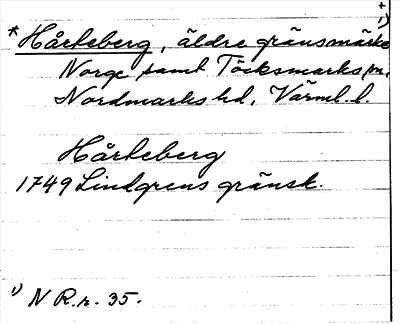 +
1)
* Hårkeberg, äldre gränsmärke
Norge samt Töcksmarks sn,
Nordmarks hd, Värml. l.
Hårkeberg
1749 Lindgrens gränsk.
1) N R. r. 35.